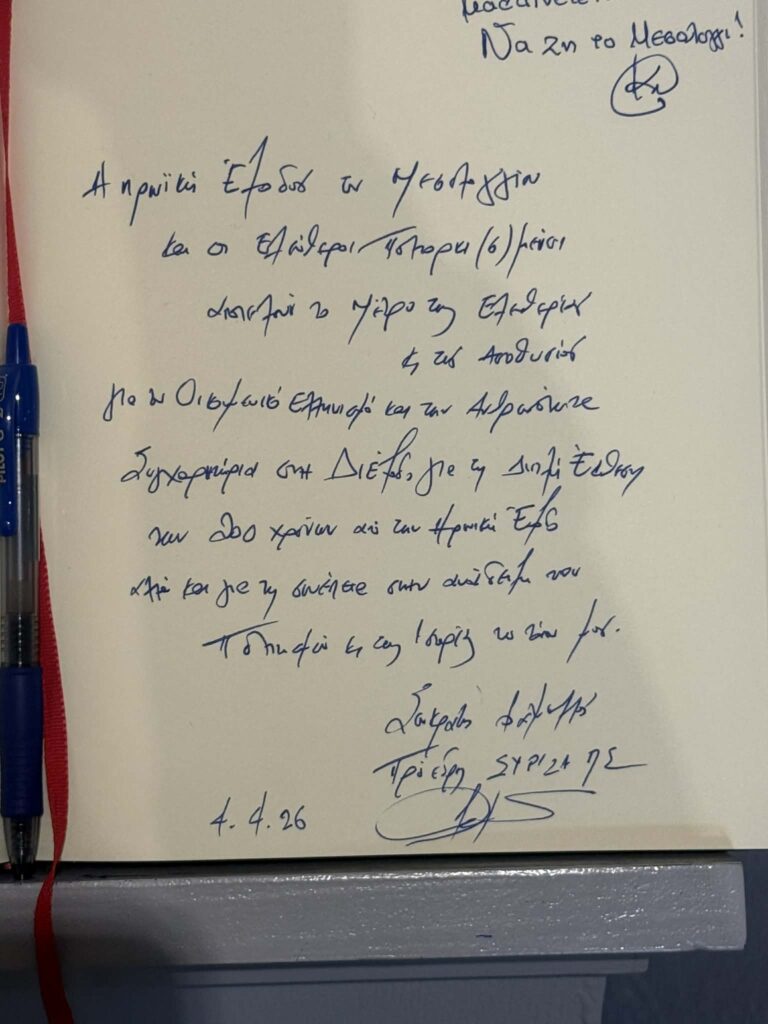 Να ζη το Μεσολόγγι!
Η ηρωϊκή Έξοδος του Μεσολογγίου
και οι Ελεύθεροι Πολιορκη(σ)μένοι
αποτελούν το μέτρο της Ελευθερίας
κ της
για τον Οικουμενικό Ελληνισμό και την Ανθρωπότητα
Συγχαρητήρια στη Διέξοδο, για τη Διπλή Έκθεση
των 200 χρόνων από την Ηρωική Έξοδο
αλλά και για τη συνέπεια στην ανάδειξη του
Πολιτισμού κ της Ιστορίας του τόπου μας.
Σωκράτης Φάμελλος
Πρόεδρος ΣΥΡΙΖΑ ΠΣ
4.4.26
PILOT